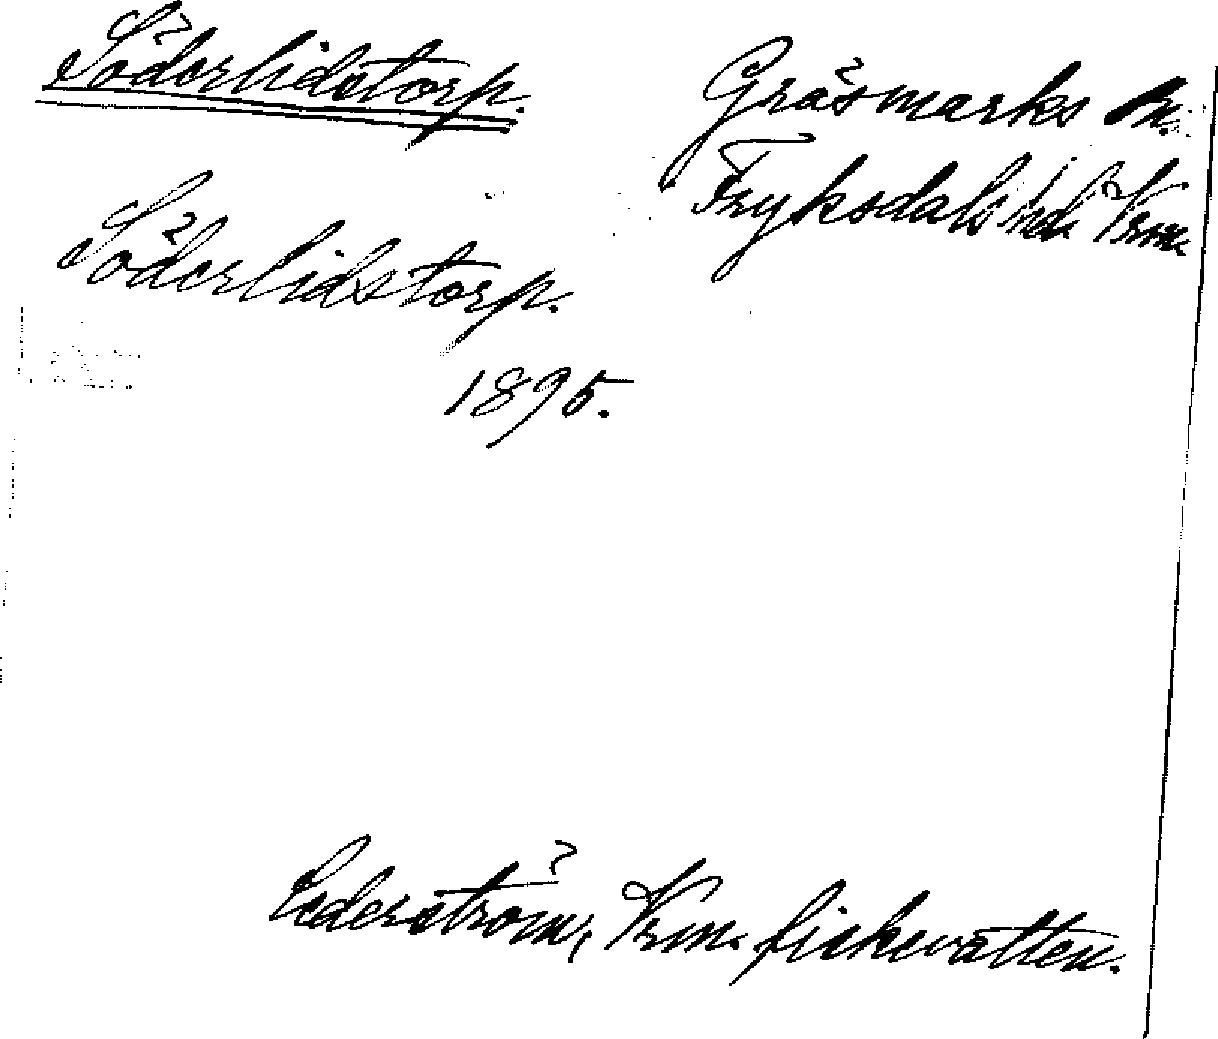 Söderlidstorp.
Gräsmarks sn.
Fryksdals hd. Vrm.
Söderlidstorp.
1895.
Cederström, Vrm. fiskevatten.